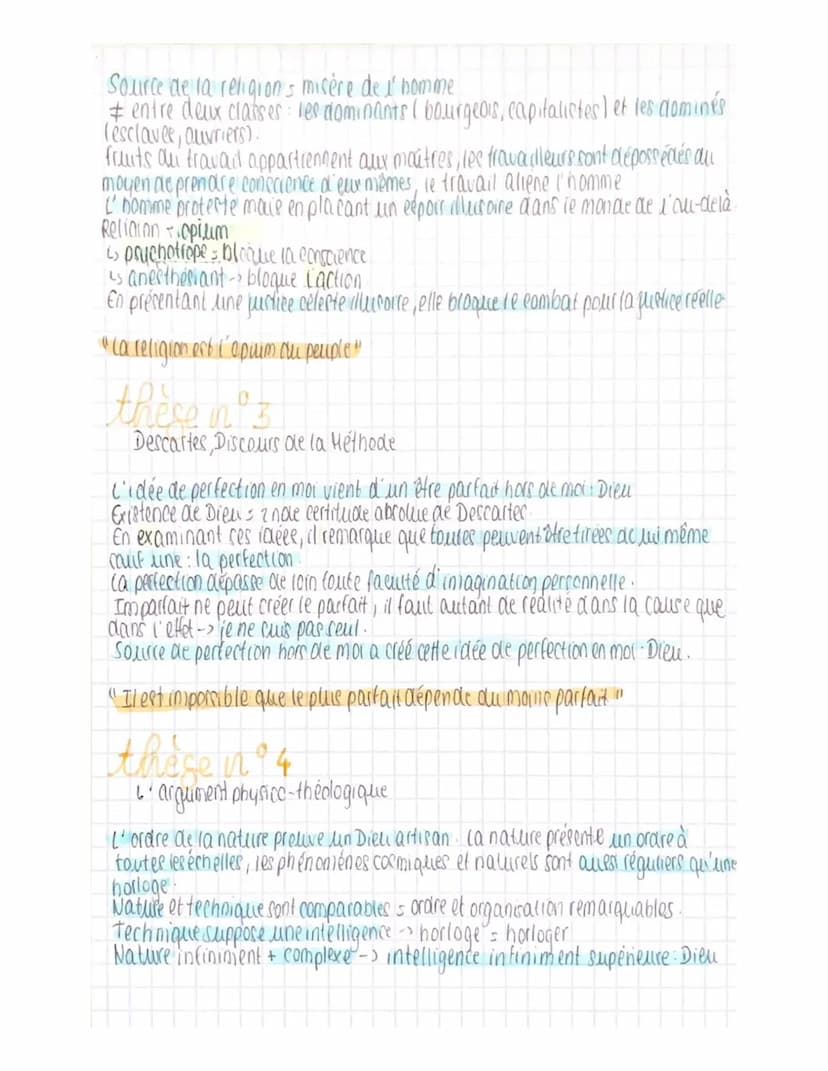 Source de la religion = misère de l'homme
≠ entre deux classes : les dominants (bourgeois, capitalistes) et les dominés
(esclaves, ouvriers).
fruits du travail appartiennent aux maîtres, les travailleurs sont dépossédés du
moyen de prendre conscience d'eux mêmes, le travail aliène l'homme
L'homme proteste mais en plaçant un espoir illusoire dans le monde de l'au-delà.
Religion = opium
↳ psychotrope = bloque la conscience
↳ anesthésiant -> bloque l'action
En présentant une justice céleste illusoire, elle bloque le combat pour la justice réelle
"La religion est l'opium du peuple"
thèse n°3
Descartes, Discours de la Méthode
L'idée de perfection en moi vient d'un être parfait hors de moi : Dieu
Existence de Dieu = 2nde certitude absolue de Descartes.
En examinant ses idées, il remarque que toutes peuvent être tirées de lui même
sauf une : la perfection.
La perfection dépasse de loin toute faculté d'imagination personnelle.
Imparfait ne peut créer le parfait, il faut autant de réalité dans la cause que
dans l'effet -> je ne suis pas seul.
Source de perfection hors de moi a créé cette idée de perfection en moi : Dieu.
"Il est impossible que le plus parfait dépende du moins parfait"
thèse n°4
L'argument physico-théologique
L'ordre de la nature prouve un Dieu artisan. La nature présente un ordre à
toutes les échelles, les phénomènes cosmiques et naturels sont aussi réguliers qu'une
horloge.
Nature et technique sont comparables = ordre et organisation remarquables.
Technique suppose une intelligence -> horloge = horloger
Nature infiniment + complexe -> intelligence infiniment supérieure : Dieu